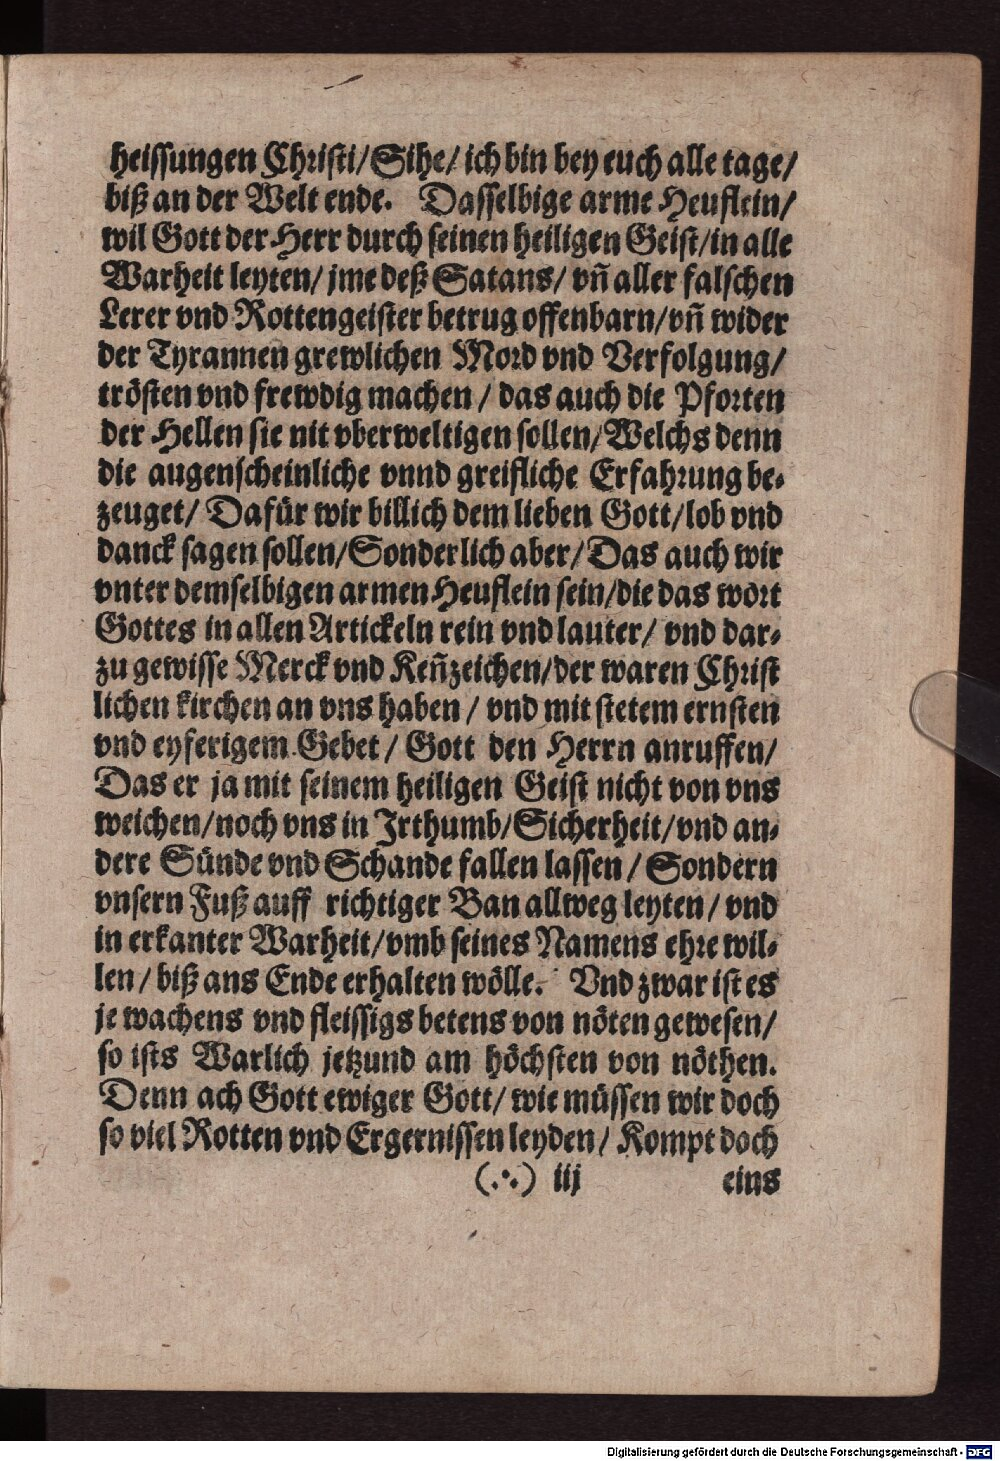 heissungen Christi/Sihe/ ich bin bey euch alle tage/
biß an der Welt ende. Dasselbige arme Heuflein/
wil Gott der Herr durch seinen heiligen Geist/in alle
Warheit leyten/ jme deß Satans/ vñ aller falschen
Lerer vnd Rottengeister betrug offenbarn/vñ wider
der Tyrannen grewlichen Mord vnd Verfolgung/
trösten vnd frewdig machen / das auch die Pforten
der Hellen sie nit vberweltigen sollen/Welchs denn
die augenscheinliche vnnd greifliche Erfahrung be-
zeuget/ Dafür wir billich dem lieben Gott/lob vnd
danck sagen sollen/Sonderlich aber/Das auch wir
vnter demselbigen armen Heuflein sein/die das wort
Gottes in allen Artickeln rein vnd lauter/ vnd dar-
zu gewisse Merck vnd Keñzeichen/der waren Christ
lichen kirchen an vns haben / vnd mit stetem ernsten
vnd eyferigem Gebet / Gott den Herrn anruffen/
Das er ja mit seinem heiligen Geist nicht von vns
weichen/noch vns in Irthumb/Sicherheit/vnd an-
dere Sünde vnd Schande fallen lassen / Sondern
vnsern Fuß auff richtiger Ban allweg leyten/ vnd
in erkanter Warheit/vmb seines Namens ehre wil-
len / biß ans Ende erhalten wölle. Vnd zwar ist es
je wachens vnd fleissigs betens von nöten gewesen/
so ists Warlich jetzund am höchsten von nöthen.
Denn ach Gott ewiger Gott/ wie müssen wir doch
so viel Rotten vnd Ergernissen leyden/ Kompt doch
(∴) iij eins
Digitalisierung gefördert durch die Deutsche Forschungsgemeinschaft - DFG